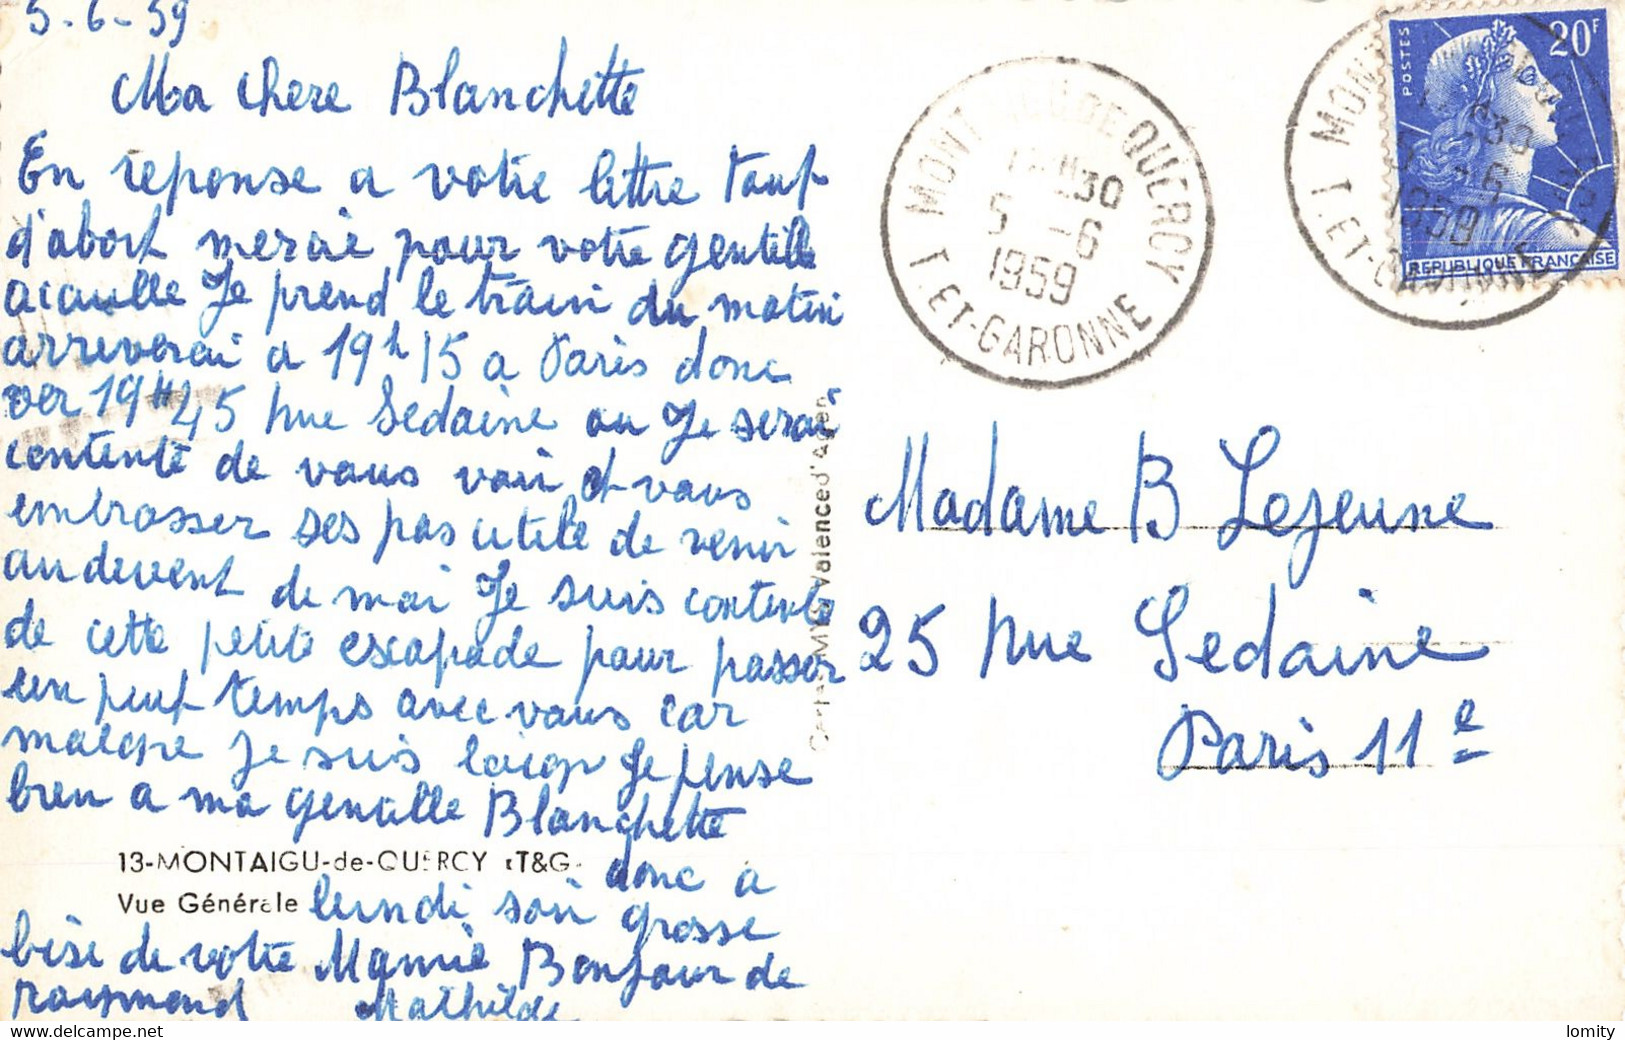 5-6-59
Ma chere Blanchette
En reponse a votre lettre tout
d'abort mercie pour votre gentille
acaulle Je prend le train du matin
arreverai a 19h15 a Paris donc
ver 19H45 Rue Sedaine ou Je serai
contente de vous voir et vous
embrasser ses pas utile de venir
au devent de moi Je suis contente
de cette petite escapade pour passer
un peut temps avec vous car
malgre je suis loign Je pense
bien a ma gentille Blanchette
donc a
lundi soir grosse
bise de votre Mamie Bonjour de
raymond Mathilde
13-MONTAIGU-de-QUERCY (T&G.
Vue Générale
Cartes MYS Valence d'Agen
MONTAIGU DE QUERCY
30
5 -6
1959
T. ET-GARONNE
POSTES
20F
REPUBLIQUE FRANÇAISE
30
5 -6
1959
T. ET-GARONNE
Madame B Lejeune
25 Rue Sedaine
Paris 11e
lomity
www.delcampe.net